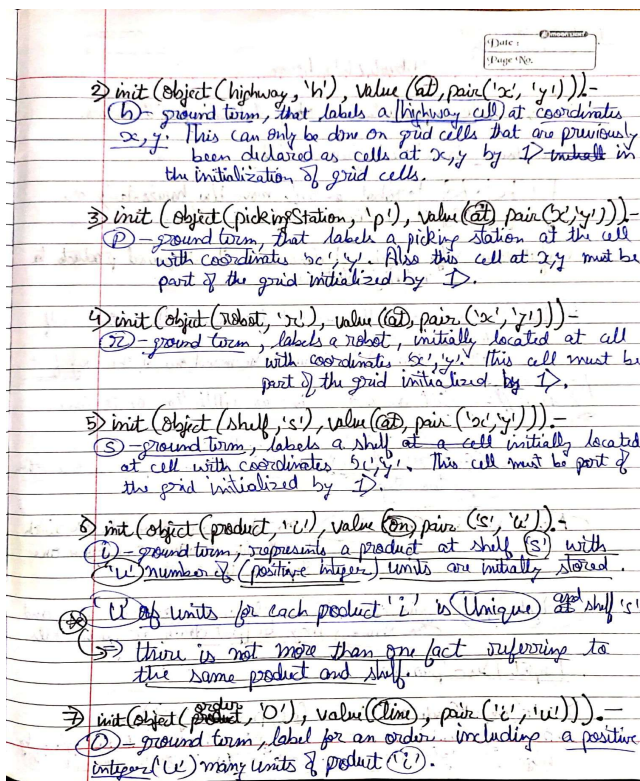 moonstar
Date :
Page No.
2) init (object (highway, 'h'), value (at, pair('x', 'y'))).-
h - ground term, that labels a highway cell at coordinates
x, y. This can only be done on grid cells that are previously
been declared as cells at x,y by 1) in
the initialization of grid cells.
3) init (object (pickingStation, 'p'), value (at, pair('x','y'))).-
p - ground term, that labels a picking station at the cell
with coordinates 'x','y'. Also this cell at x,y must be
part of the grid initialized by 1).
4) init (object (robot, 'r'), value (at, pair ('x', 'y'))) -
r - ground term, labels a robot, initially located at cell
with coordinates 'x','y'. This cell must be
part of the grid initialized by 1).
5) init (object (shelf, 's'), value (at, pair ('x','y'))).-
s - ground term, labels a shelf at a cell initially located
at cell with coordinates 'x','y'. This cell must be part of
the grid initialized by 1).
6) init (object (product, 'i'), value (on, pair ('s', 'u')).-
i - ground term, represents a product at shelf 's' with
'u' number of (positive integer) units are initially stored.
'u' of units for each product 'i' is Unique and at shelf 's'
=> there is not more than one fact referring to
the same product and shelf.
7) init (object (product order, 'O'), value (line, pair ('i', 'u'))).-
O - ground term, label for an order including a positive
integer ('u') many units of product 'i'.